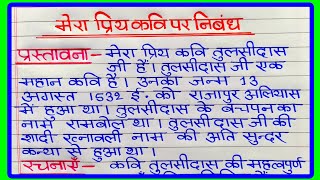 मेरा प्रिय कवि पर निबंध
प्रस्तावना:- मेरा प्रिय कवि तुलसीदास
जी हैं। तुलसीदास जी एक
महान कवि हैं। उनका जन्म 13
अगस्त 1532 ई॰ को राजापुर अलियास
में हुआ था। तुलसीदास के बचपन का
नाम रामबोला था। तुलसीदास जी की
शादी रत्नावली नाम की अति सुन्दर
कन्या से हुआ था।
रचनाएँ:- कवि तुलसीदास की महत्वपुर्ण